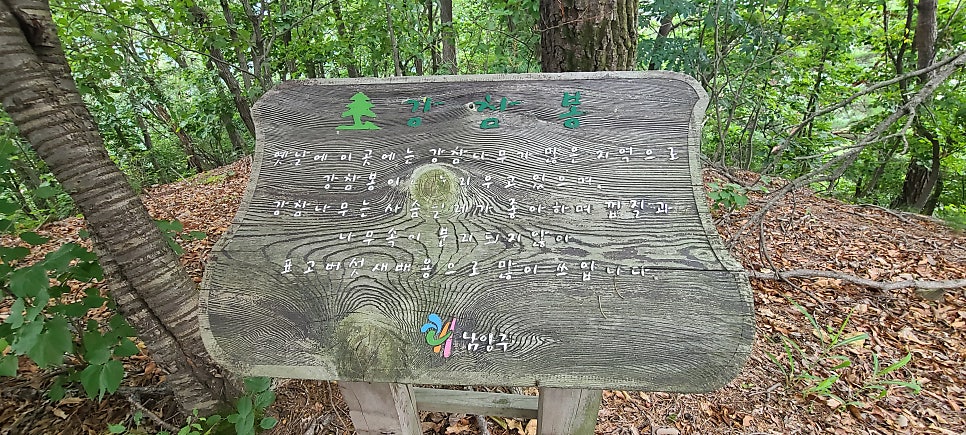 강참봉
옛날에 이곳에는 강참나무가 많은 지역으로
강참봉이 우고 있으며,
강참나무는 사슴벌레가 좋아하며 껍질과
나무속이 분리되지 않아
표고버섯재배용으로 많이 쓰입니다.
남양주